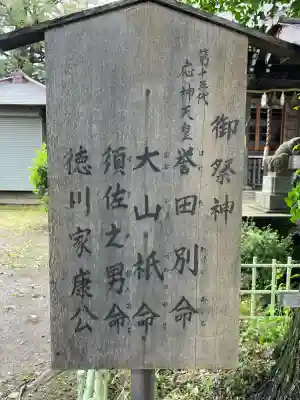 御祭神
第十五代
応神天皇
誉田別命
大山祇命
須佐之男命
徳川家康公